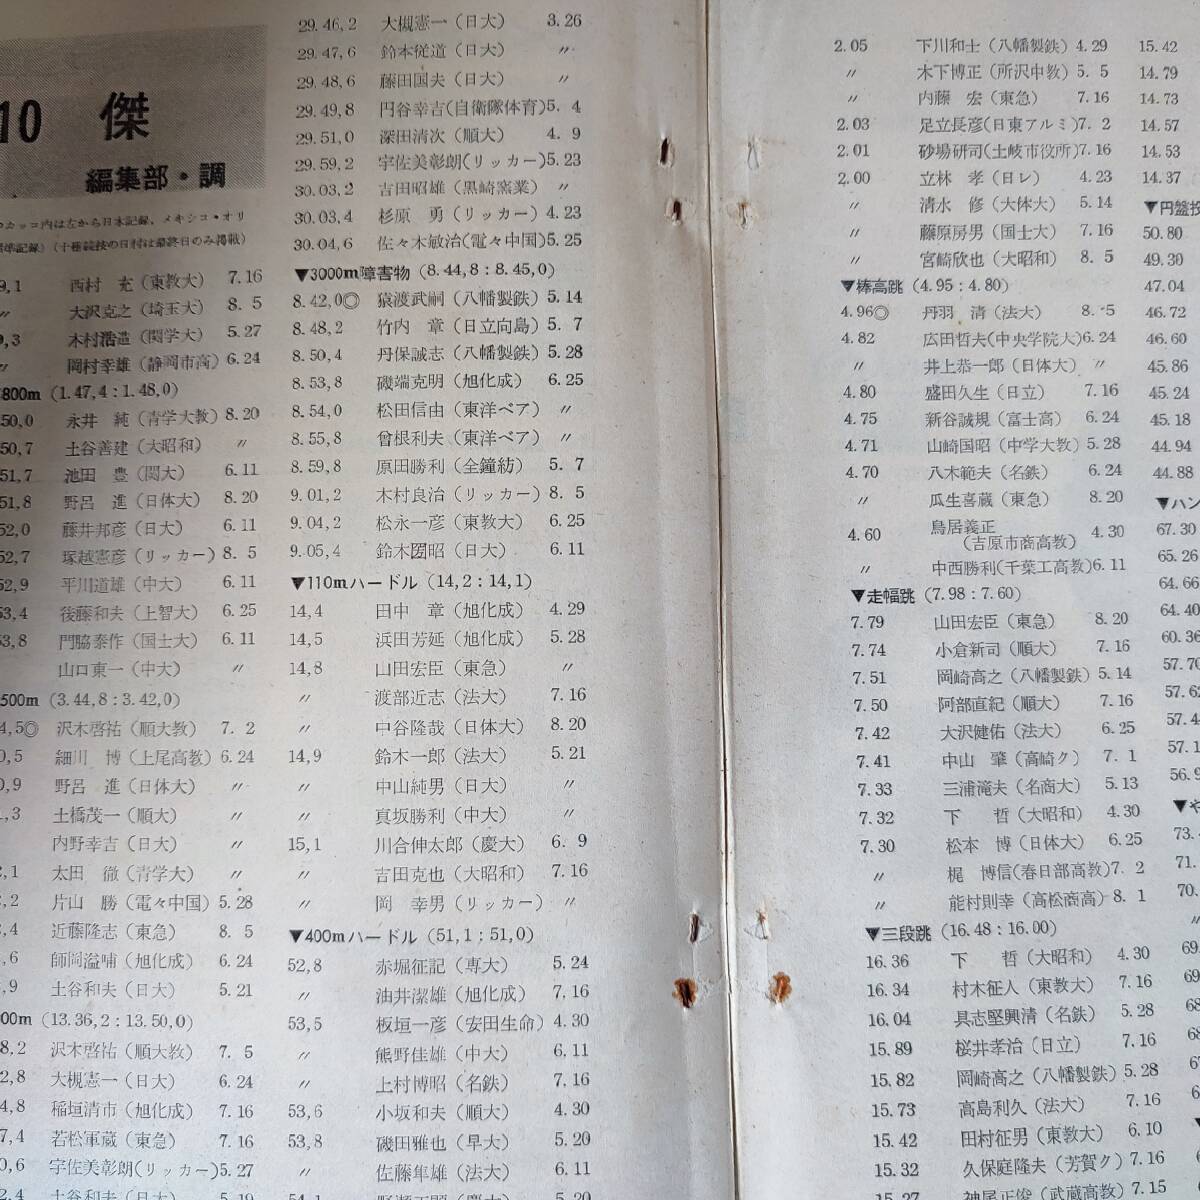 10 傑
編集部・調
カッコ内は左から日本記録、メキシコ・オリ
準記録）（十種競技の日付は最終日のみ掲載）
9,1 西村 充（東教大） 7.16
〃 大沢克之（埼玉大） 8. 5
9,3 木村浩造（関学大） 5.27
〃 岡村幸雄（静岡市高） 6.24
800m (1.47,4 : 1.48,0)
50,0 永井 純（青学大教） 8.20
50,7 土谷善建（大昭和） 〃
51,7 池田 豊（関大） 6.11
51,8 野呂 進（日体大） 8.20
52,0 藤井邦彦（日大） 6.11
52,7 塚越憲彦（リッカー） 8. 5
52,9 平川道雄（中大） 6.11
53,4 後藤和夫（上智大） 6.25
53,8 門脇泰作（国士大） 6.11
山口東一（中大） 〃
500m (3.44,8 : 3.42,0)
4,5◎ 沢木啓祐（順大教） 7. 2
0,5 細川 博（上尾高教） 6.24
0,9 野呂 進（日体大） 〃
1,3 土橋茂一（順大） 〃
内野幸吉（日大） 〃
2,1 太田 徹（青学大） 〃
3,2 片山 勝（電々中国） 5.28
3,4 近藤隆志（東急） 8. 5
,6 師岡溢哺（旭化成） 6.24
,9 土谷和夫（日大） 5.21
00m (13.36,2 : 13.50,0)
8,2 沢木啓祐（順大教） 7. 5
2,8 大槻憲一（日大） 6.24
4,8 稲垣清市（旭化成） 7.16
7,4 若松軍蔵（東急） 7.16
0,6 宇佐美彰朗（リッカー） 5.27
2,4 土谷和夫（日大） 5.19
29.46,2 大槻憲一（日大） 3.26
29.47,6 鈴木従道（日大） 〃
29.48,6 藤田国夫（日大） 〃
29.49,8 円谷幸吉（自衛隊体育） 5. 4
29.51,0 深田清次（順大） 4. 9
29.59,2 宇佐美彰朗（リッカー） 5.23
30.03,2 吉田昭雄（黒崎窯業） 〃
30.03,4 杉原 勇（リッカー） 4.23
30.04,6 佐々木敏治（電々中国） 5.25
▼3000m障害物 (8.44,8 : 8.45,0)
8.42,0◎ 猿渡武嗣（八幡製鉄） 5.14
8.48,2 竹内 章（日立向島） 5. 7
8.50,4 丹保誠志（八幡製鉄） 5.28
8.53,8 磯端克明（旭化成） 6.25
8.54,0 松田信由（東洋ベア） 〃
8.55,8 曾根利夫（東洋ベア） 〃
8.59,8 原田勝利（全鐘紡） 5. 7
9.01,2 木村良治（リッカー） 8. 5
9.04,2 松永一彦（東教大） 6.25
9.05,4 鈴木圀昭（日大） 6.11
▼110mハードル (14,2 : 14,1)
14,4 田中 章（旭化成） 4.29
14,5 浜田芳延（旭化成） 5.28
14,8 山田宏臣（東急） 〃
〃 渡部近志（法大） 7.16
〃 中谷隆哉（日体大） 8.20
14,9 鈴木一郎（法大） 5.21
〃 中山純男（日大） 〃
〃 真坂勝利（中大） 〃
15,1 川合伸太郎（慶大） 6. 9
〃 吉田克也（大昭和） 7.16
〃 岡 幸男（リッカー） 〃
▼400mハードル (51,1 : 51,0)
52,8 赤堀征記（専大） 5.24
〃 油井潔雄（旭化成） 7.16
53,5 板垣一彦（安田生命） 4.30
〃 熊野佳雄（中大） 6.11
〃 上村博昭（名鉄） 7.16
53,6 小坂和夫（順大） 4.30
53,8 磯田雅也（早大） 5.20
〃 佐藤隼雄（法大） 6.11
54,1 5.20
2.05 下川和士（八幡製鉄） 4.29
〃 木下博正（所沢中教） 5. 5
〃 内藤 宏（東急） 7.16
2.03 足立長彦（日東アルミ） 7. 2
2.01 砂場研司（土岐市役所） 7.16
2.00 立林 孝（日レ） 4.23
〃 清水 修（大体大） 5.14
〃 藤原房男（国士大） 7.16
〃 宮崎欣也（大昭和） 8. 5
▼棒高跳 (4.95 : 4.80)
4.96◎ 丹羽 清（法大） 8. 5
4.82 広田哲夫（中央学院大） 6.24
〃 井上恭一郎（日体大） 〃
4.80 盛田久生（日立） 7.16
4.75 新谷誠規（富士高） 6.24
4.71 山崎国昭（中学大教） 5.28
4.70 八木範夫（名鉄） 6.24
〃 瓜生喜蔵（東急） 8.20
4.60 鳥居義正（吉原市商高教） 4.30
〃 中西勝利（千葉工高教） 6.11
▼走幅跳 (7.98 : 7.60)
7.79 山田宏臣（東急） 8.20
7.74 小倉新司（順大） 7.16
7.51 岡崎高之（八幡製鉄） 5.14
7.50 阿部直紀（順大） 7.16
7.42 大沢健佑（法大） 6.25
7.41 中山 肇（高崎ク） 7. 1
7.33 三浦滝夫（名商大） 5.13
7.32 下 哲（大昭和） 4.30
7.30 松本 博（日体大） 6.25
〃 梶 博信（春日部高教） 7. 2
〃 能村則幸（高松商高） 8. 1
▼三段跳 (16.48 : 16.00)
16.36 下 哲（大昭和） 4.30
16.34 村木征人（東教大） 7.16
16.04 具志堅興清（名鉄） 5.28
15.89 桜井孝治（日立） 7.16
15.82 岡崎高之（八幡製鉄） 5.28
15.73 高島利久（法大） 7.16
15.42 田村征男（東教大） 6.10
15.32 久保庭隆夫（芳賀ク） 7.16
15.27 神尾正俊（武蔵高教） 7.15
15.42
14.79
14.73
14.57
14.53
14.37
▼円盤投
50.80
49.30
47.04
46.72
46.60
45.86
45.24
45.18
44.94
44.88
▼ハン
67.30
65.26
64.66
64.40
60.36
57.70
57.62
57.4
57.1
56.9
▼や
73.
71.
70.
〃
69.
69
68
68
67